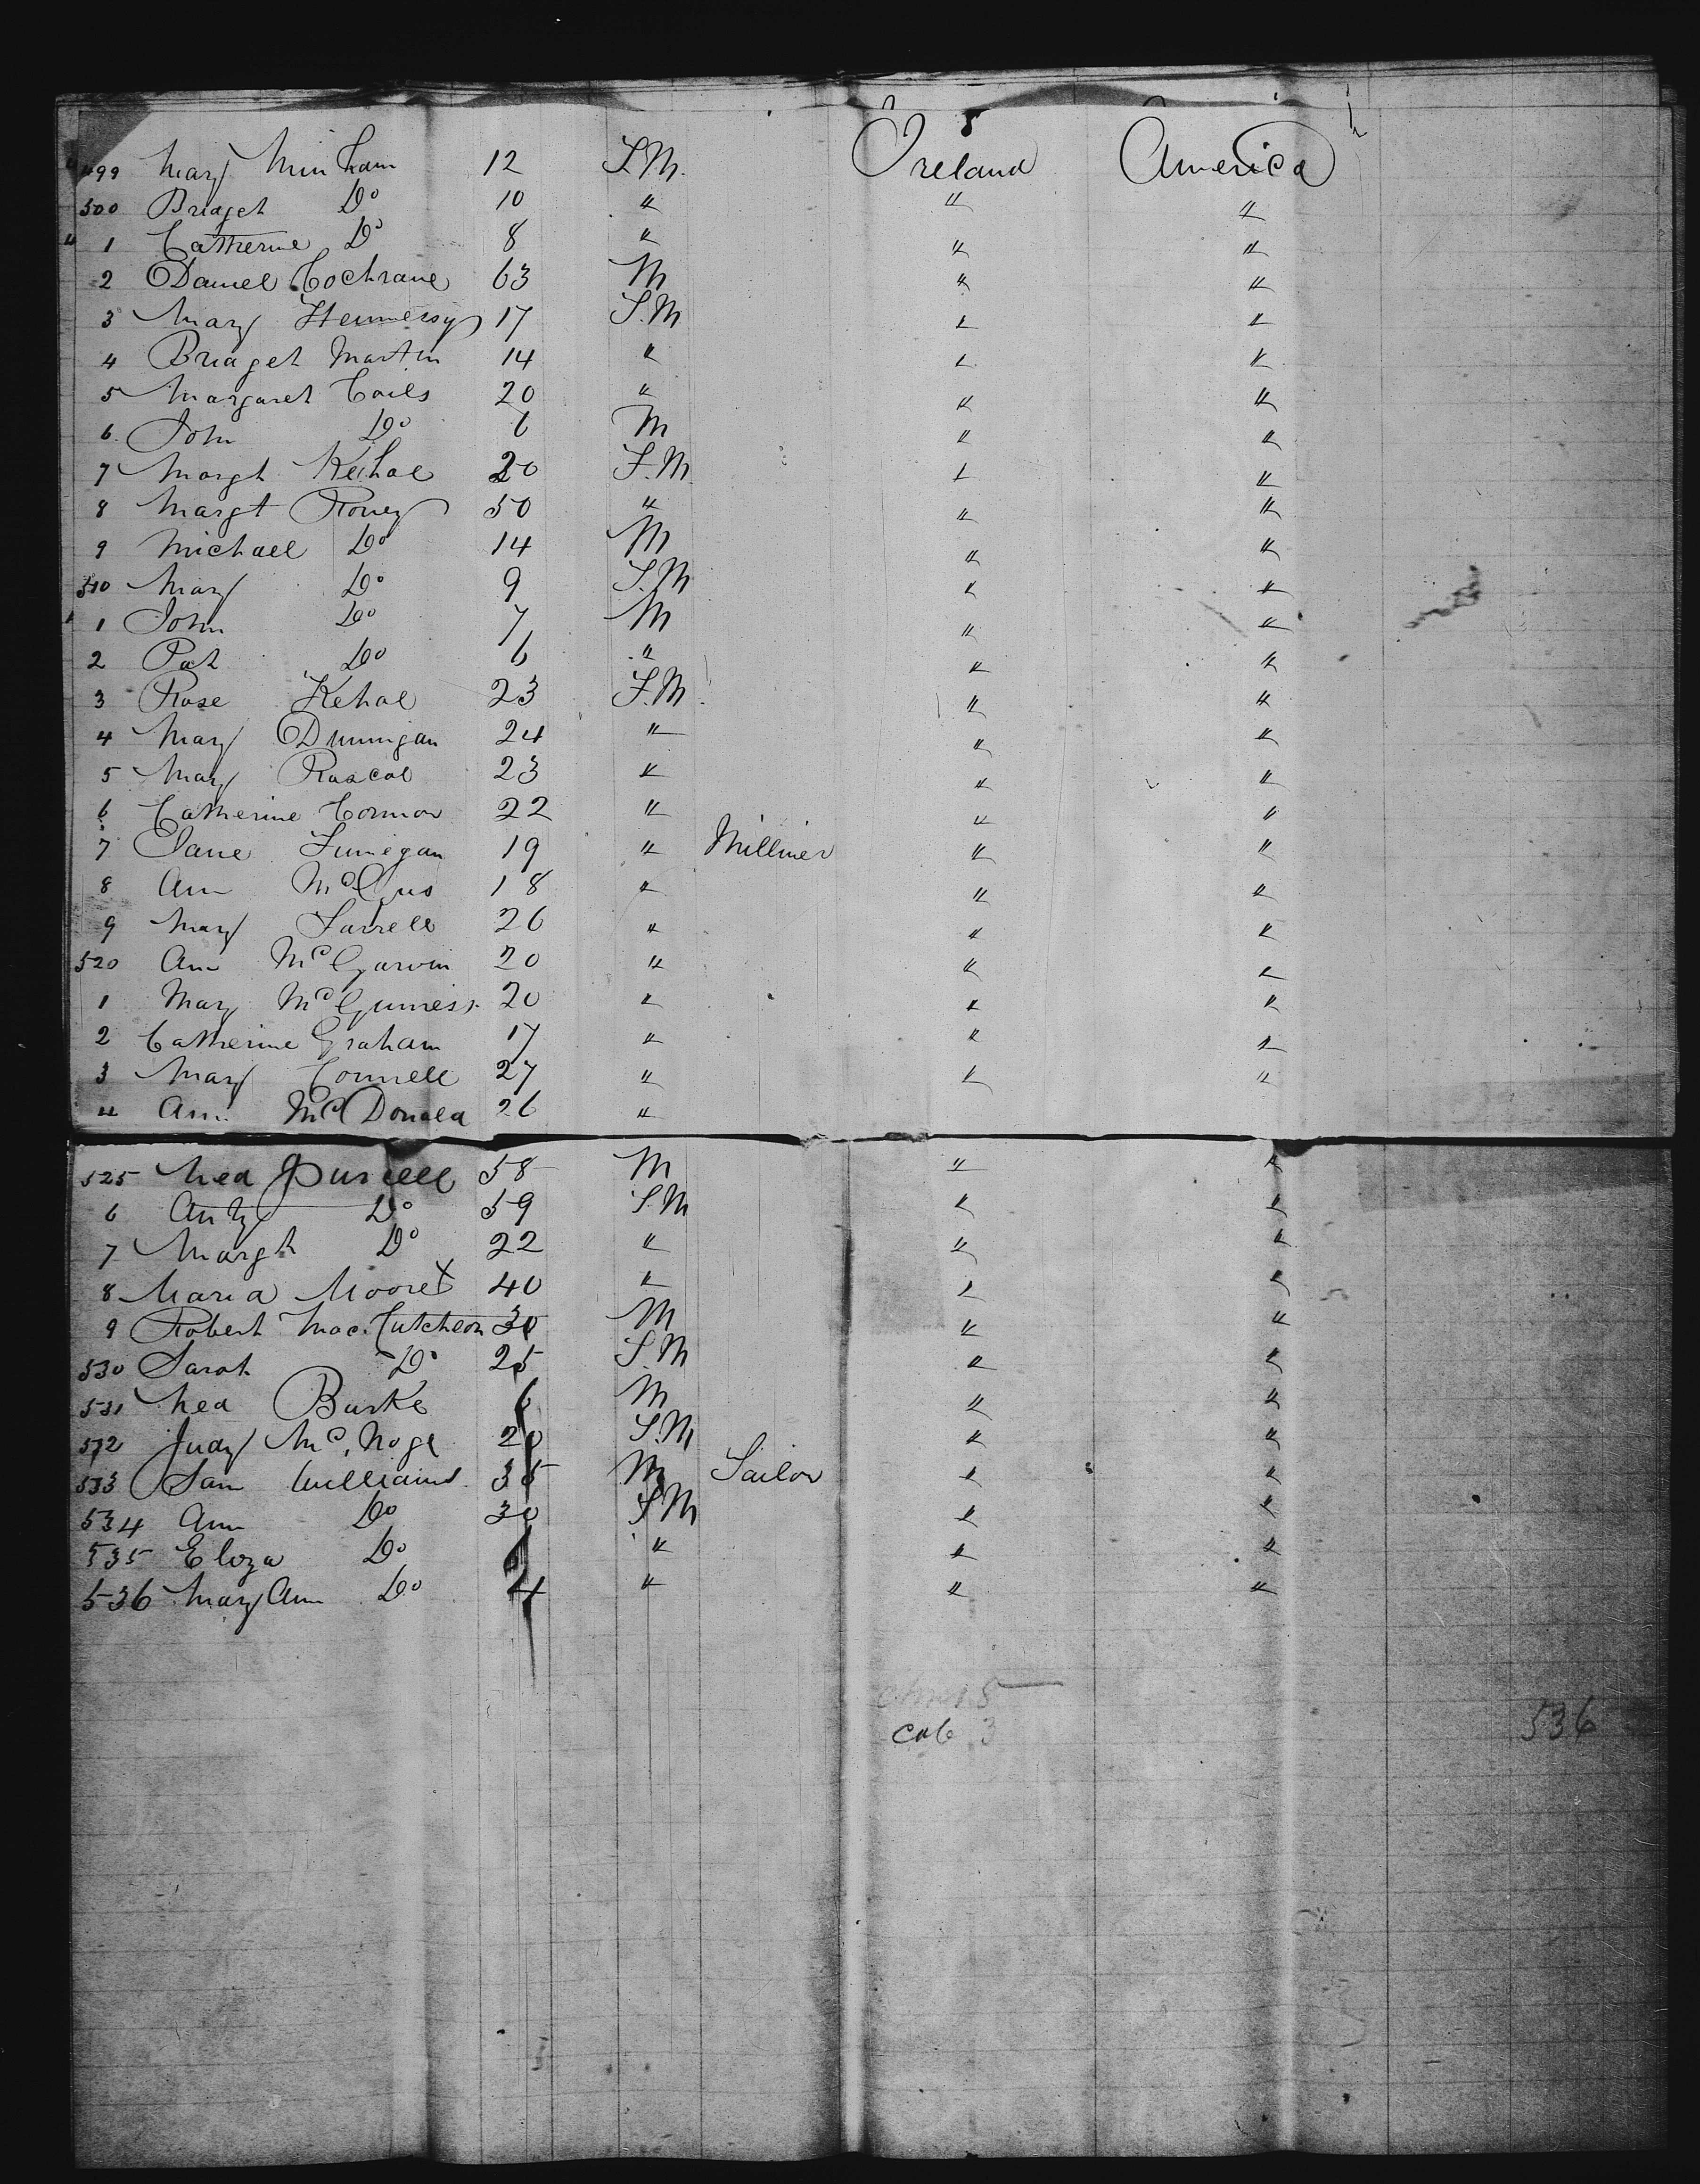 499 Mary Minham 12 F.M. Ireland America
500 Bridget Do 10 " " "
1 Catherine Do 8 " " "
2 Daniel Cochrane 63 M " "
3 Mary Hennessy 17 F.M " "
4 Bridget Martin 14 " " "
5 Margaret Coils 20 " " "
6 John Do 6 M " "
7 Margt Kehoe 20 F.M " "
8 Margt Roney 50 " " "
9 Michael Do 14 M " "
510 Mary Do 9 F.M " "
1 John Do 7 M " "
2 Pat Do 6 " " "
3 Rose Kehoe 23 F.M " "
4 Mary Dunnigan 24 " " "
5 Mary Rascoe 23 " " "
6 Catherine Connor 22 " " "
7 Jane Finnegan 19 " Milliner " "
8 Ann 18 " " "
9 Mary Farrell 26 " " "
520 Ann McGarvin 20 " " "
1 Mary McGuiness 20 " " "
2 Catherine Graham 17 " " "
3 Mary Connell 27 " " "
4 Ann McDonald 26 "
525 Ned Purcell 58 M " "
6 Do 59 F.M " "
7 Margt Do 22 " " "
8 Maria Moore 40 " " "
9 Robert Mac.Cutcheon 30 M " "
530 Sarah Do 25 F.M " "
531 Ned Burke 6 M " "
532 Judy 20 F.M " "
533 Sam Williams 35 M Sailor " "
534 Ann Do 30 F.M " "
535 Eliza Do " " "
536 Mary Ann Do 4 " " "
cab 3 536